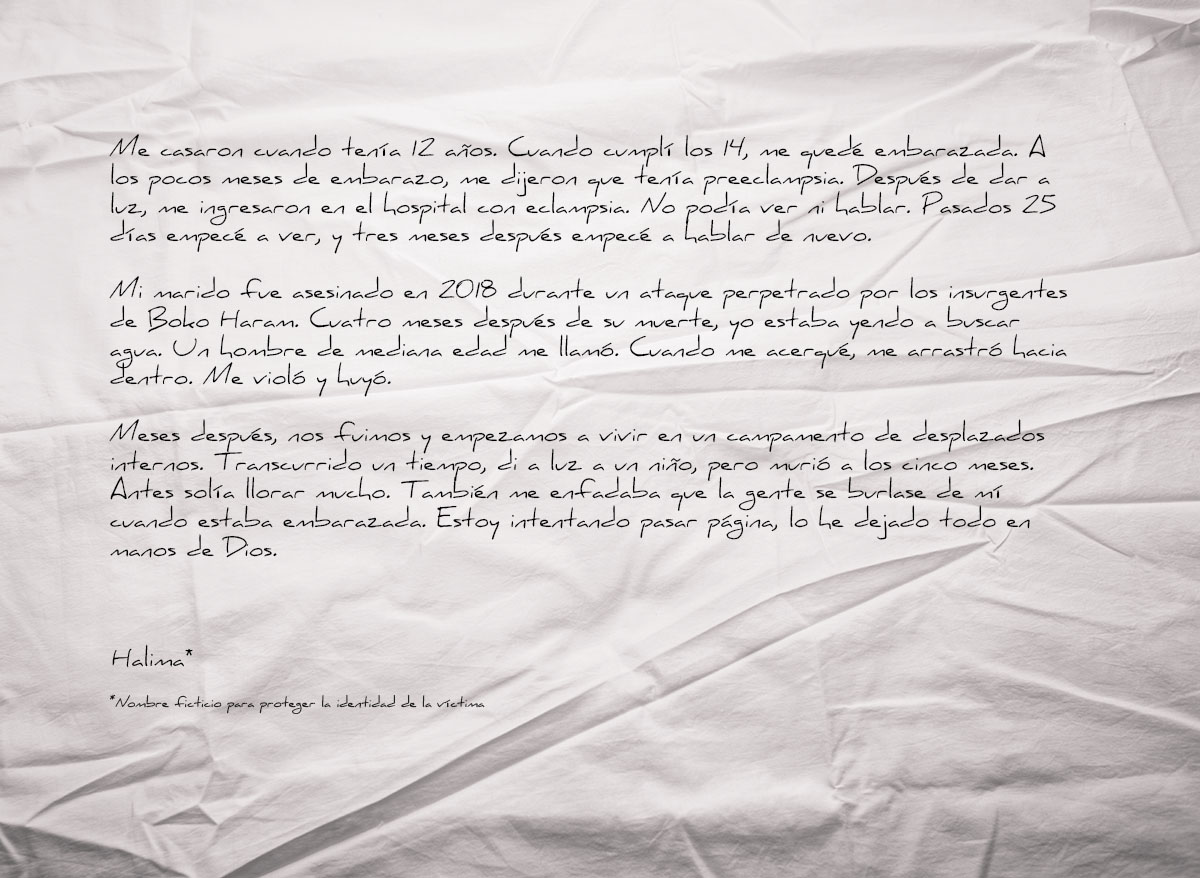 Me casaron cuando tenía 12 años. Cuando cumplí los 14, me quedé embarazada. A
los pocos meses de embarazo, me dijeron que tenía preeclampsia. Después de dar a
luz, me ingresaron en el hospital con eclampsia. No podía ver ni hablar. Pasados 25
días empecé a ver, y tres meses después empecé a hablar de nuevo.
Mi marido fue asesinado en 2018 durante un ataque perpetrado por los insurgentes
de Boko Haram. Cuatro meses después de su muerte, yo estaba yendo a buscar
agua. Un hombre de mediana edad me llamó. Cuando me acerqué, me arrastró hacia
dentro. Me violó y huyó.
Meses después, nos fuimos y empezamos a vivir en un campamento de desplazados
internos. Transcurrido un tiempo, di a luz a un niño, pero murió a los cinco meses.
Antes solía llorar mucho. También me enfadaba que la gente se burlase de mí
cuando estaba embarazada. Estoy intentando pasar página, lo he dejado todo en
manos de Dios.
Halima*
*Nombre ficticio para proteger la identidad de la víctima